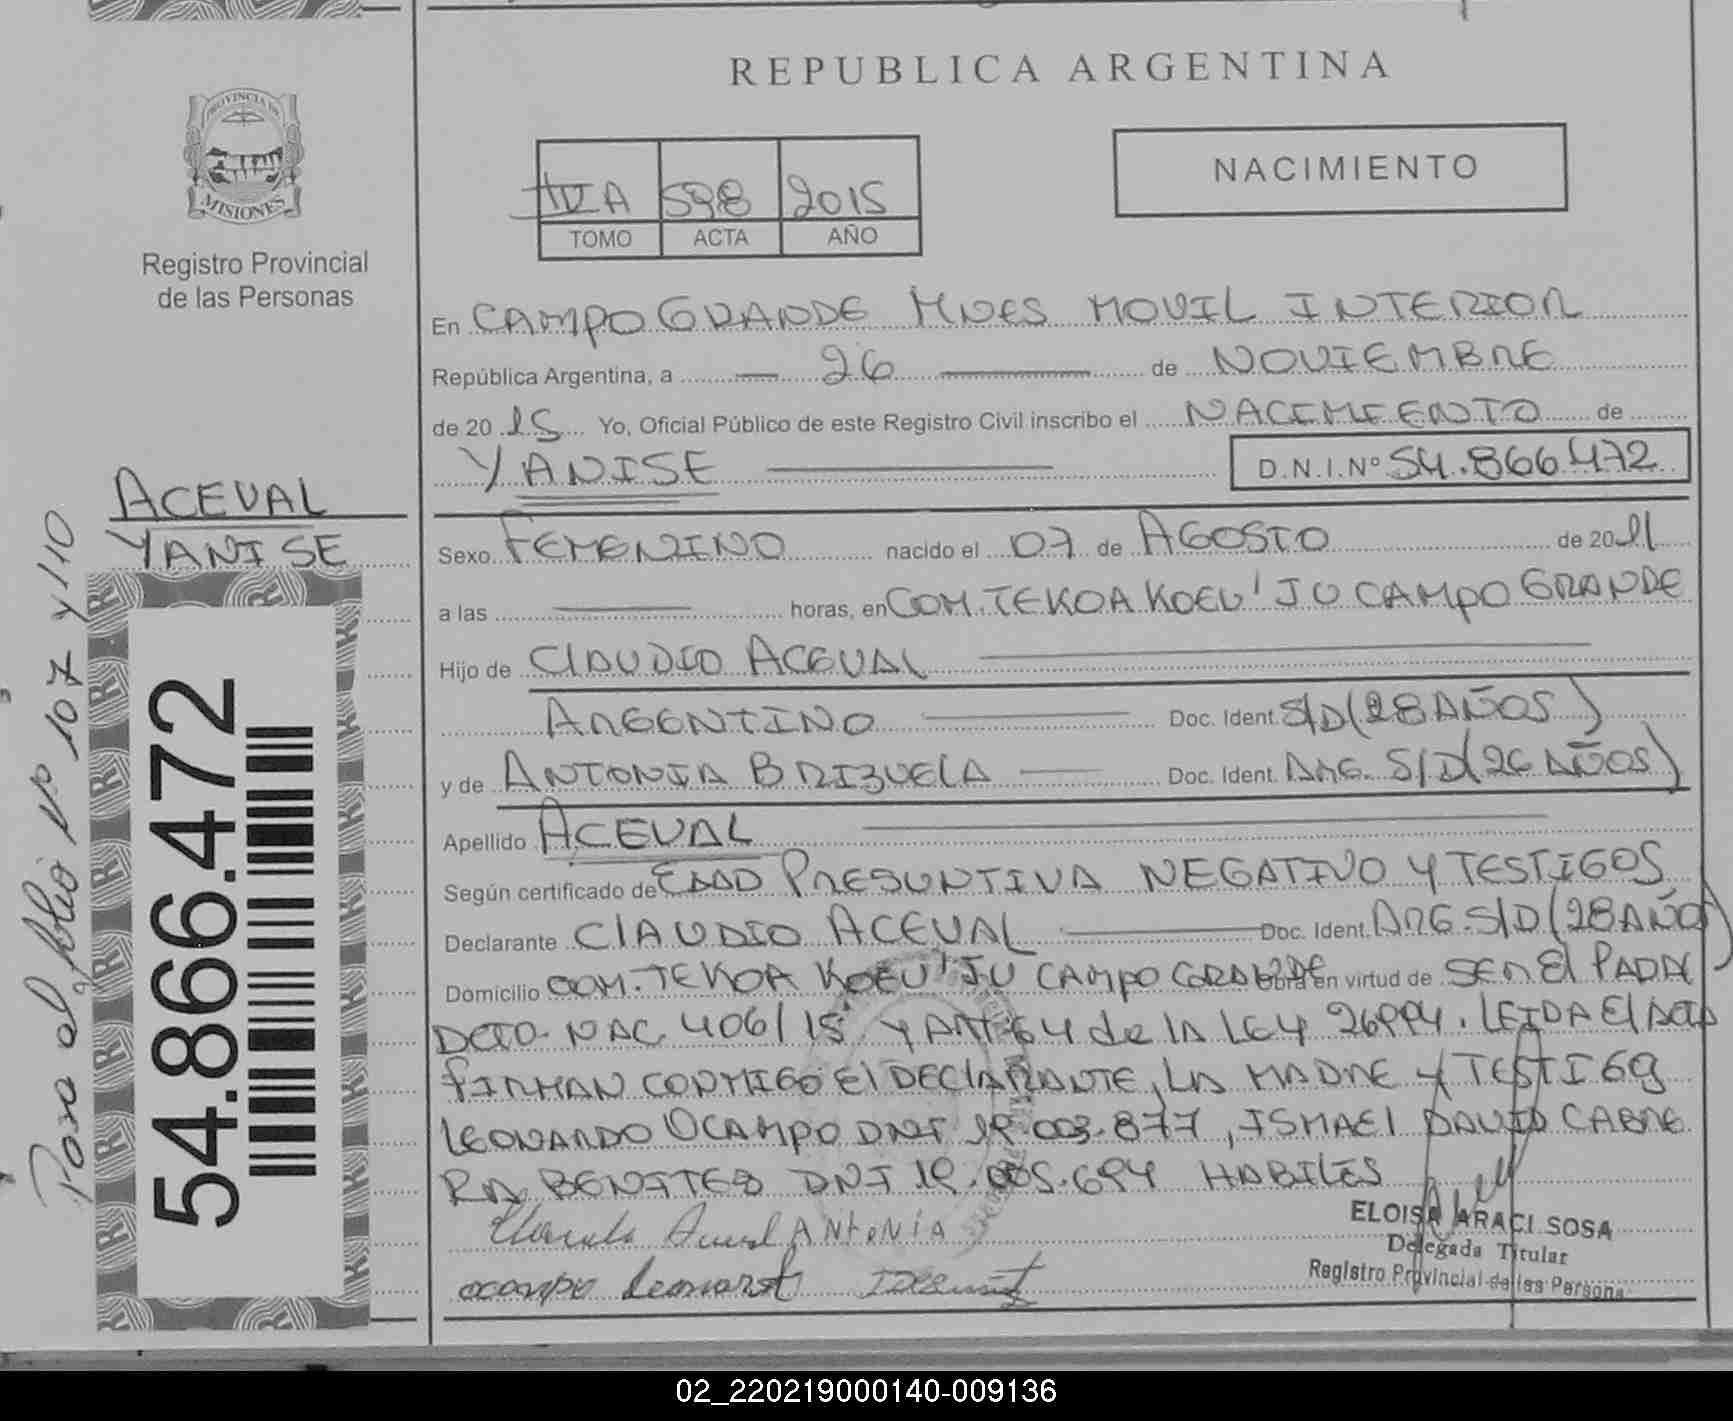 REPUBLICA ARGENTINA
PROVINCIA DE
MISIONES
Registro Provincial
de las Personas
NACIMIENTO
A 598 2015
TOMO ACTA AÑO
En CAMPO GRANDE MNES MOVIL INTERIOR
República Argentina, a — 26 — de NOVIEMBRE
de 20 15 Yo, Oficial Público de este Registro Civil inscribo el NACIMIENTO de
YANISE D.N.I.Nº 54.866.472
ACEVAL
YANISE
Sexo FEMENINO nacido el 07 de AGOSTO de 2011
a las — horas, en COM. TEKOA KOEU'JU CAMPO GRANDE
Hijo de CLAUDIO ACEVAL
ARGENTINO Doc. Ident. S/D (28 AÑOS)
y de ANTONIA BRIZUELA — Doc. Ident. ARG. S/D (26 AÑOS)
Apellido ACEVAL
Según certificado de EDAD PRESUNTIVA NEGATIVO Y TESTIGOS
Declarante CLAUDIO ACEVAL Doc. Ident. ARG. S/D (28 AÑOS)
Domicilio COM. TEKOA KOEU'JU CAMPO GRANDE Obra en virtud de SER El PADRE
DCTO. NAC. 406/15 Y ART 64 de lA LEY 26994. LEIDA El ACTA
FIRMAN CONMIGO El DEClARANTE, LA MADRE Y TESTIGO
LEONARDO OCAMPO DNI 19.003.877, ISMAEl DAVID CABRE
RA BENITEZ DNI 19.005.694 HABILES
ANtoNiA
ocampo Leonardo
ELOISA ARACI SOSA
Delegada Titular
Registro Provincial de las Persona
54.866.472
Pasa al folio Nº 107 y 110
02_220219000140-009136